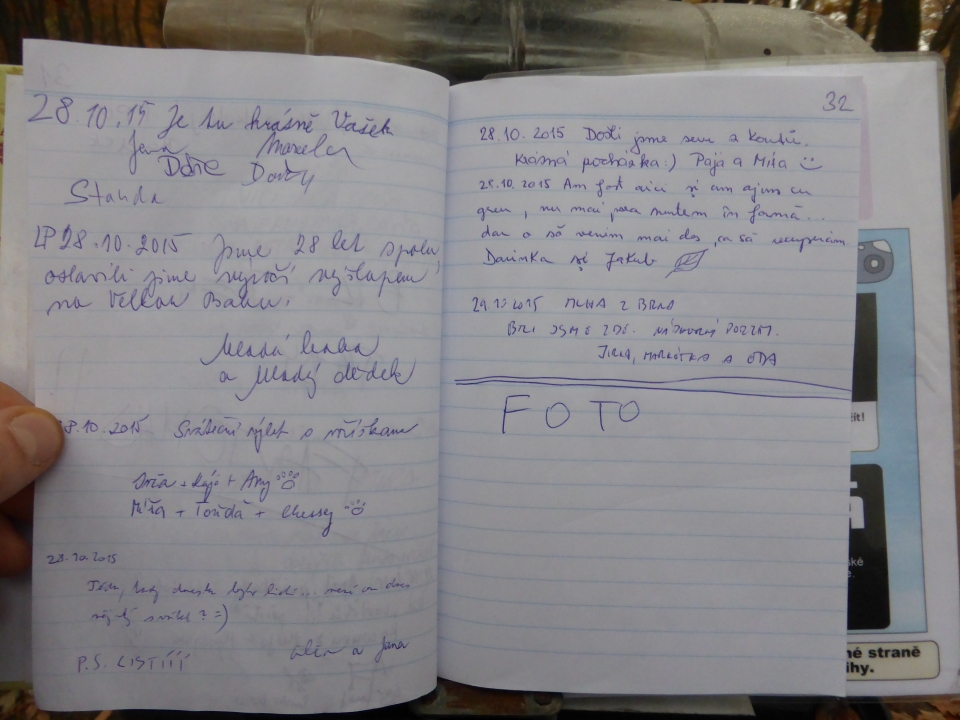 28.10.15 Je tu krásně Vašek
Jana Marcela
Dorty
Standa
28.10.2015 Jsme 28 let spolu,
oslavili jsme výročí výšlapem
na Velkou Babu.
Mladá babka
a Mladý dědek
28.10.2015 Sváteční výlet s
+ Kája + Amy
Míša + Tonda + Chessy
28.10.2015
dneska lidí... není on dnes
svátek? =)
P.S. LISTÍÍÍ a Jana
32
28.10.2015 Došli jsme sem z
Krásná procházka :) Pája a Míla
28.10.2015 Am fost aici și am ajuns cu
greu, nu mai prea suntem în formă...
dar o să venim mai des, ca să recuperăm
Darinka și Jakub
29.10.2015 Z BRNA
BYLI JSME ZDE. POZOR.
JIRKA, MARKÉTKA A OTA
FOTO
it!
ské
e.
né straně
ihy.